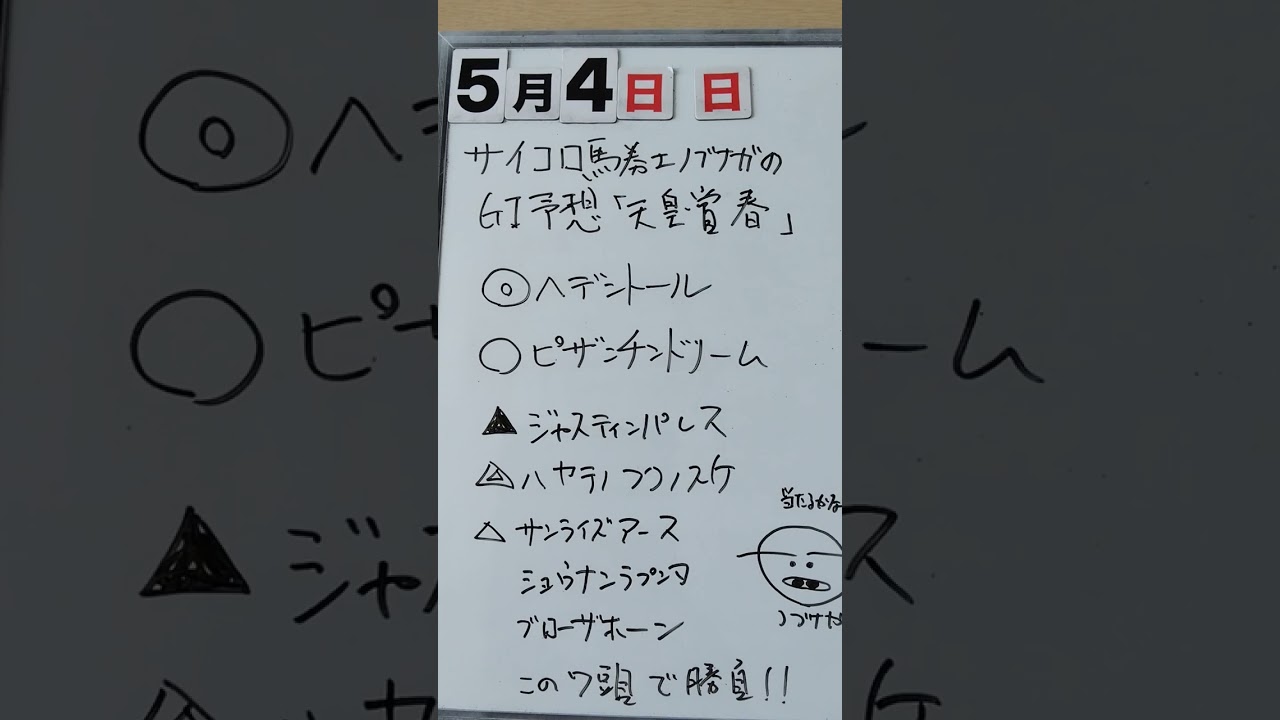 5月4日 日
サイコロ馬券士ノブナガの
GI予想「天皇賞春」
◎ヘデントール
○ビザンチンドリーム
▲ジャスティンパレス
△ハヤテノフクノスケ
△サンライズアース
ショウナンラプンタ
ブローザホーン
この7頭で勝負!!
当たるかな